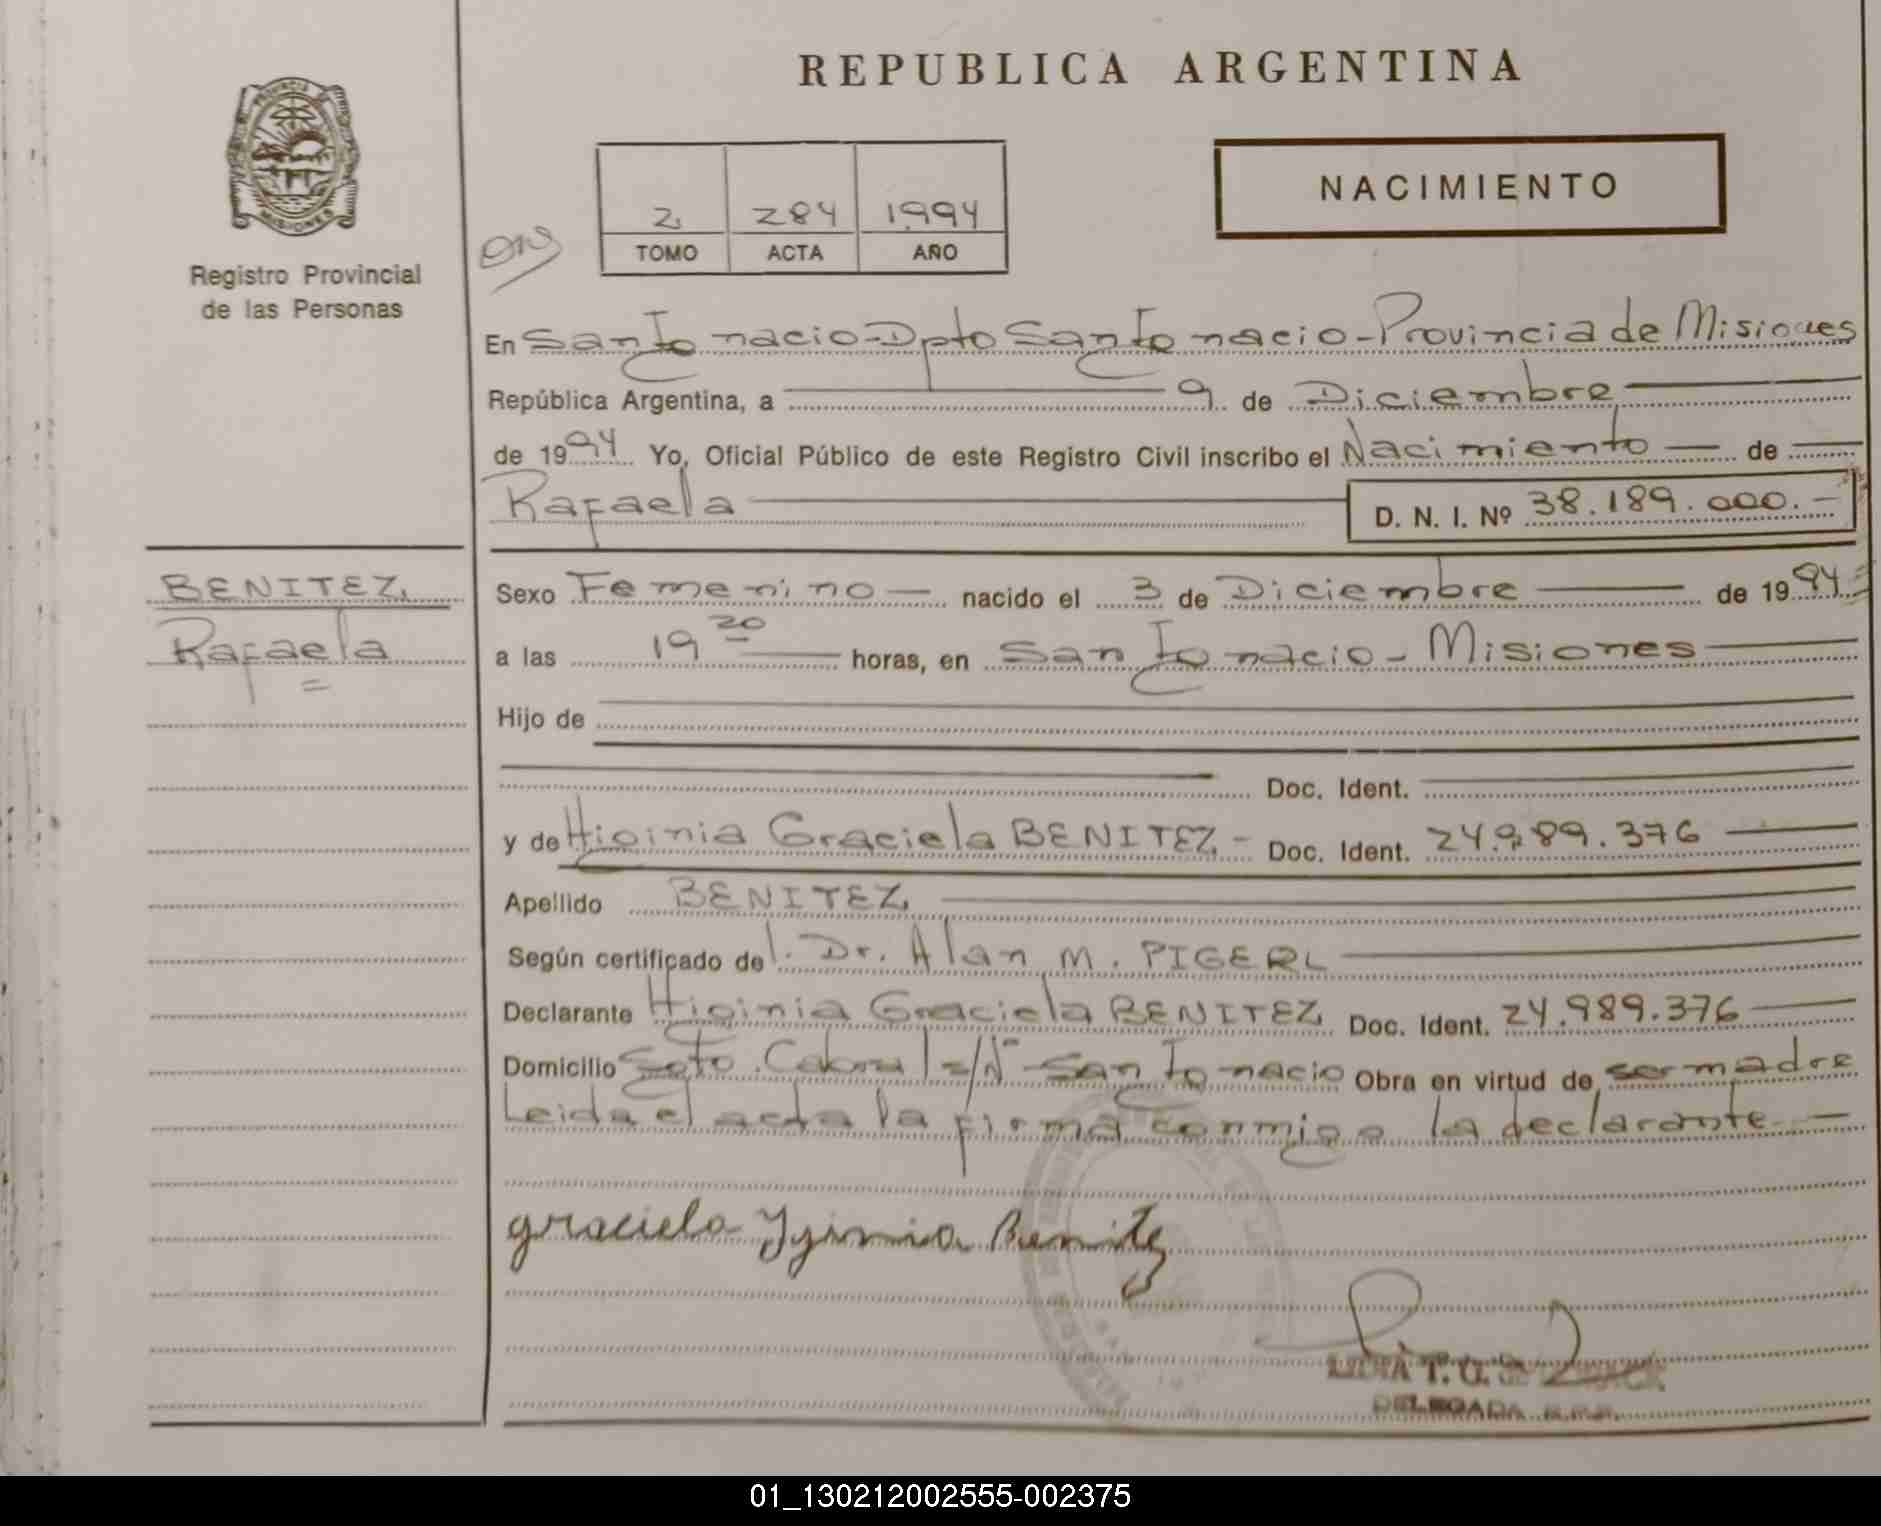 REPUBLICA ARGENTINA
PROVINCIA DE
MISIONES
Registro Provincial
de las Personas
NACIMIENTO
2 284 1994
TOMO ACTA AÑO
En San Ignacio - Dpto San Ignacio - Provincia de Misiones
República Argentina, a 9 de Diciembre
de 1994 Yo, Oficial Público de este Registro Civil inscribo el Nacimiento de
Rafaela D. N. I. Nº 38.189.000.-
BENITEZ
Rafaela
Sexo Femenino nacido el 3 de Diciembre de 1994
a las 19 20 horas, en San Ignacio - Misiones
Hijo de
Doc. Ident.
y de Higinia Graciela BENITEZ - Doc. Ident. 24.989.376
Apellido BENITEZ
Según certificado de l. Dr. Alan M. PIGERL
Declarante Higinia Graciela BENITEZ Doc. Ident. 24.989.376
Domicilio Sgto. Cabral s/Nº San Ignacio Obra en virtud de ser madre
Leida el acta la firma conmigo la declarante -
graciela Yginia Benitez
LIDIA T. G. DE
DELEGADA R.P.P.
01_130212002555-002375